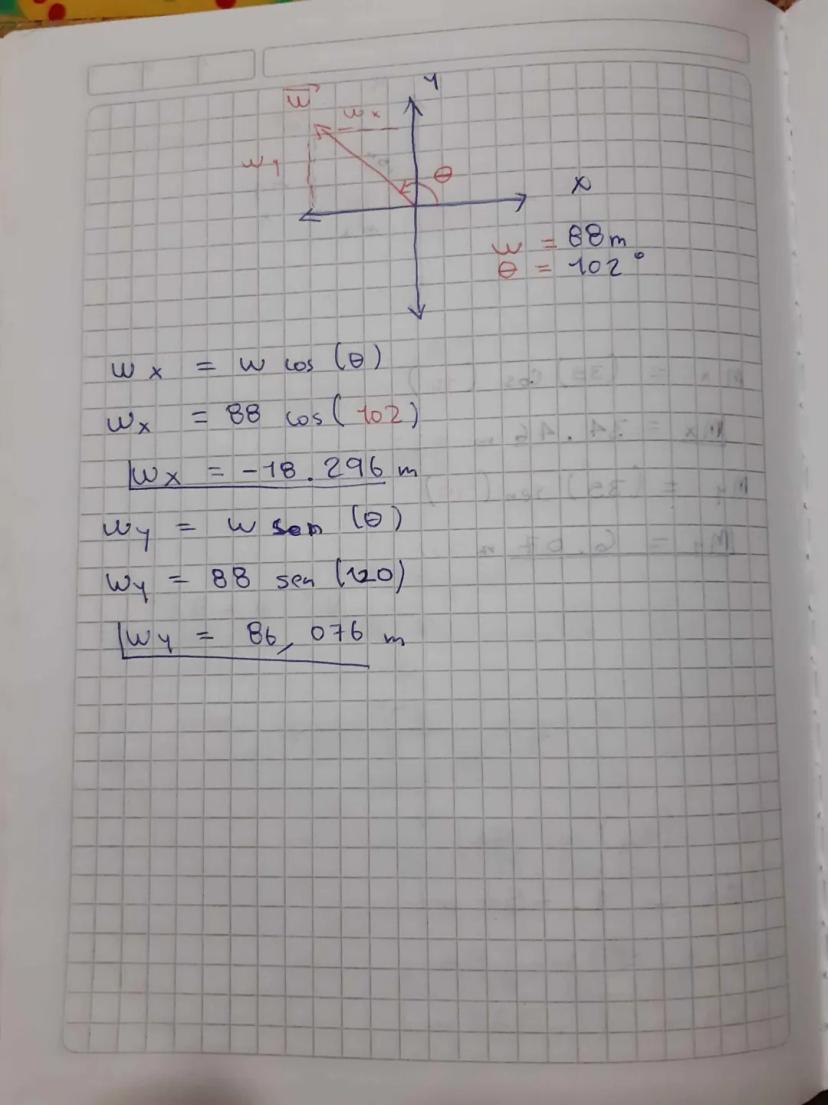 Y
w
wx
wy
θ
x
w = 88m
θ = 102°
wx = w cos (θ)
wx = 88 cos (102)
wx = -18.296 m
wy = w sen (θ)
wy = 88 sen (120)
wy = 86,076 m